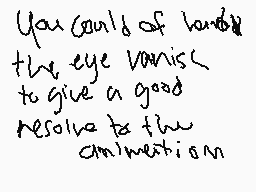 You could of had
the eye vanish
to give a good
resolve to the
animation